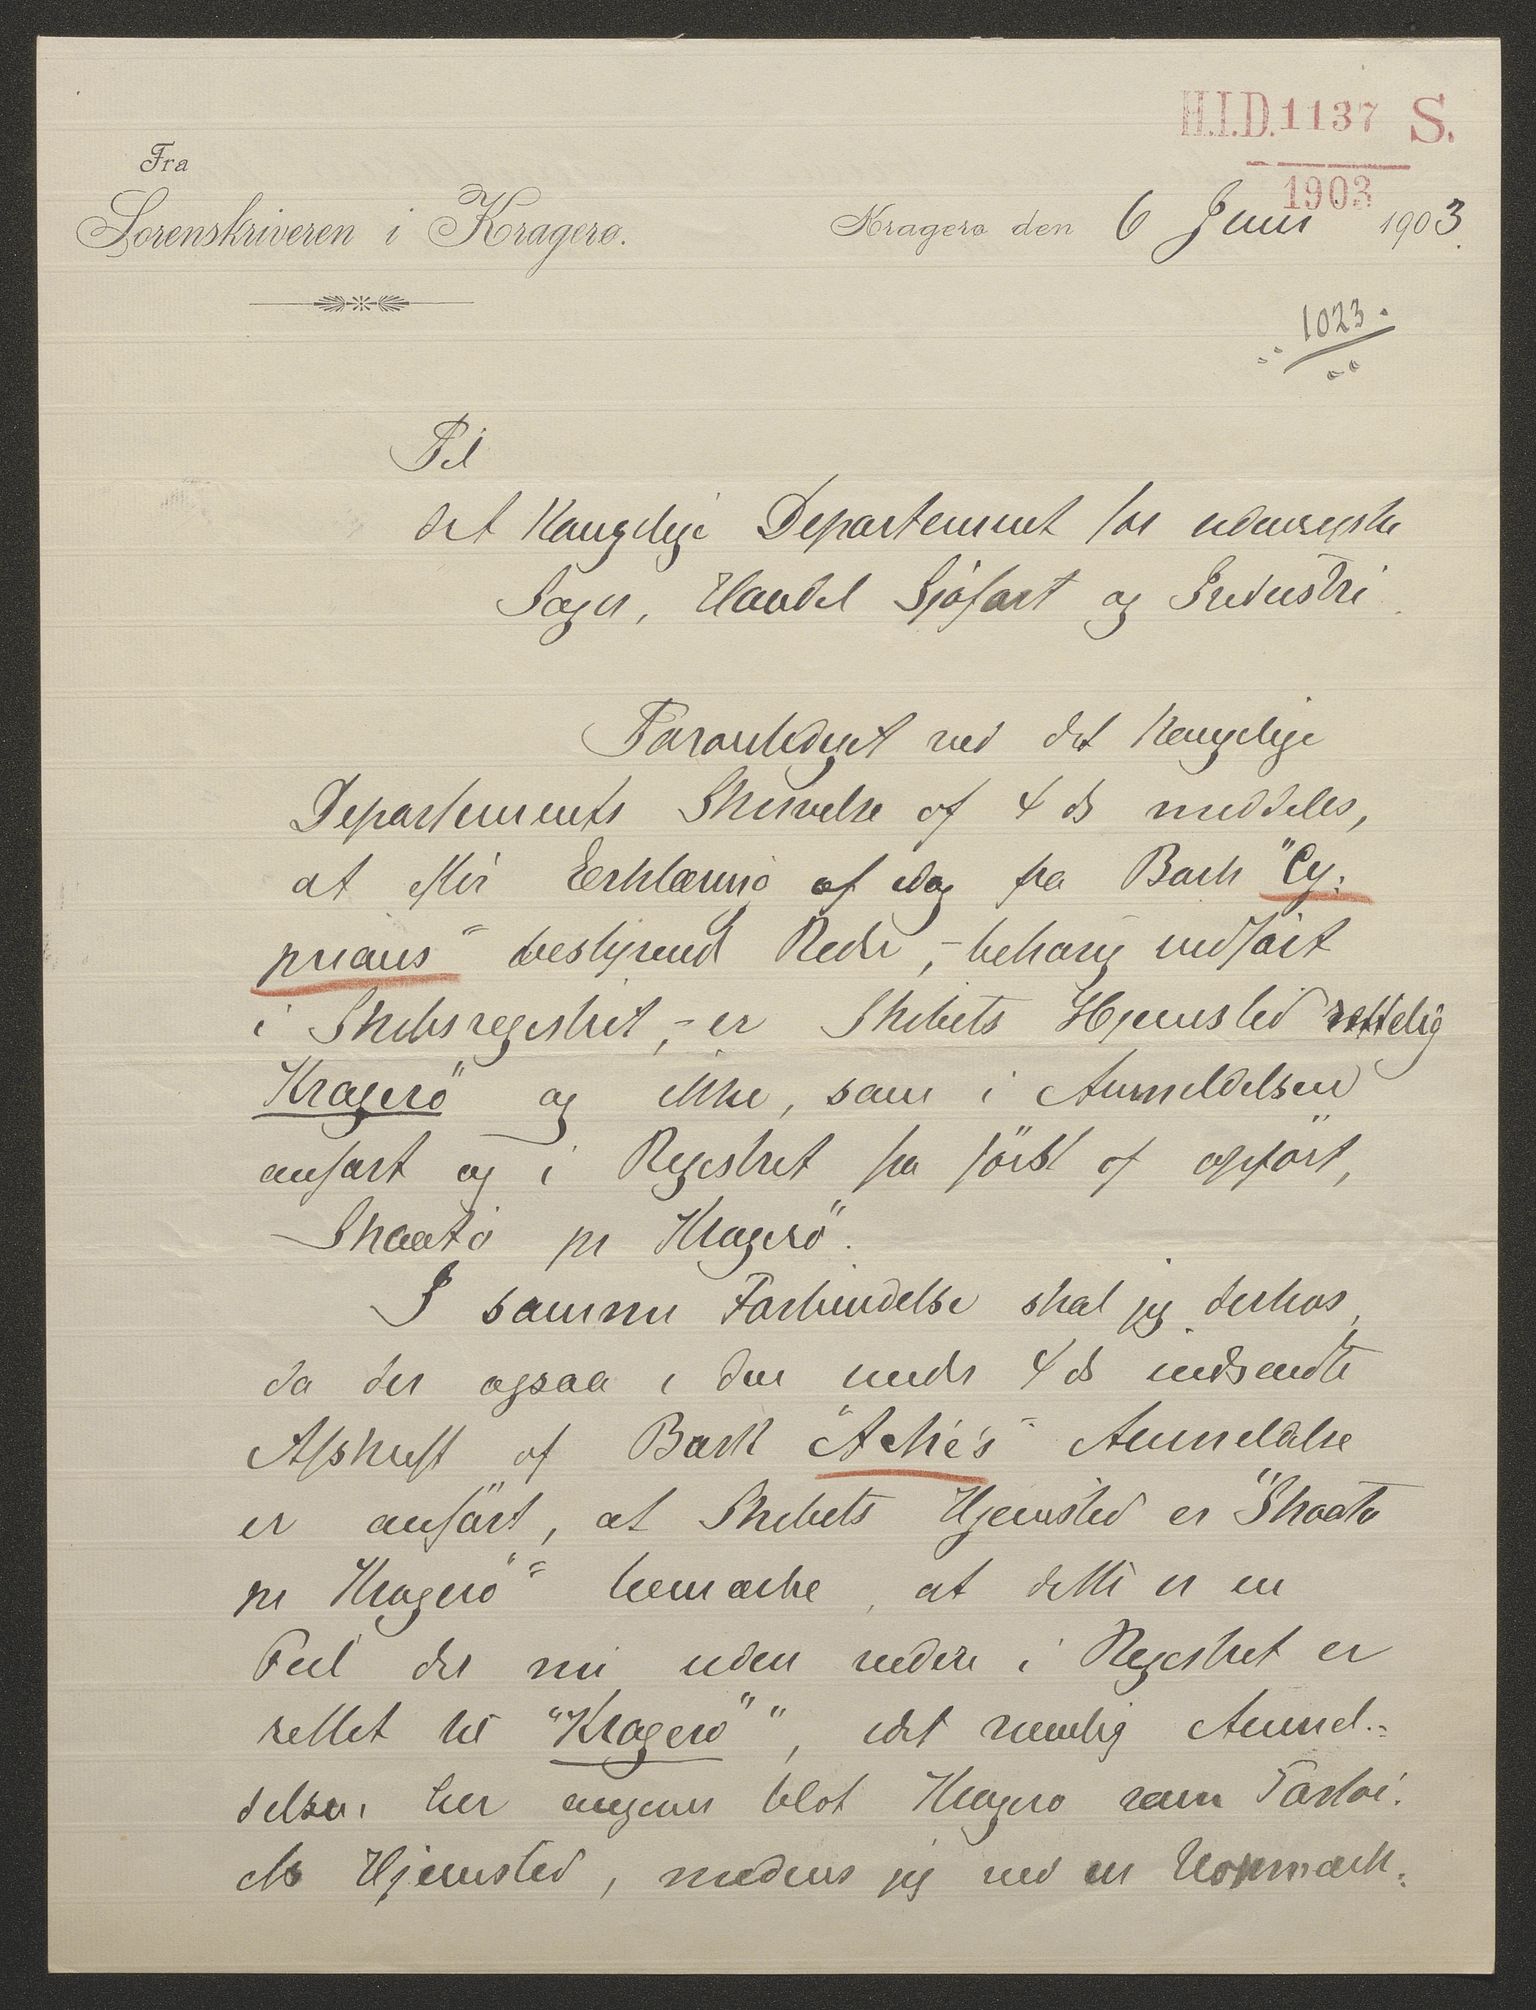 H.I.D. 1137 S.
1903
Fra
Sorenskriveren i Kragerø.
Kragerø den 6 Juni 1903.
1023.
Til
det Kongelige Departement for udenrigske
Sager, Handel Sjøfart og Industri.
Foranlediget ved det Kongelige
Departements Skrivelse af 4 ds meddeles,
at efter Erklæring af idag fra Bark "Cy-
prians" bestyrend Reder, - behørig indført
i Skibsregistret, - er Skibets Hjemsted rettelig
Kragerø" og ikke, som i Anmeldelsen
anført og i Registret fra først af opført,
Skaatø pr Kragerø".
I samme Forbindelse skal jeg derhos,
da der ogsaa i den under 4 ds indsendte
Afskrift af Bark "Actie's" Anmeldelse
er anført, at Skibets Hjemsted er "Skaatø
pr Kragerø" bemærke, at dette er en
Feil der nu uden videre i Registret er
rettet til "Kragerø", idet nemlig Anmel-
delsen her angiver blot Kragerø som Fartøi-
ets Hjemsted, medens jeg ved en Uopmærk-